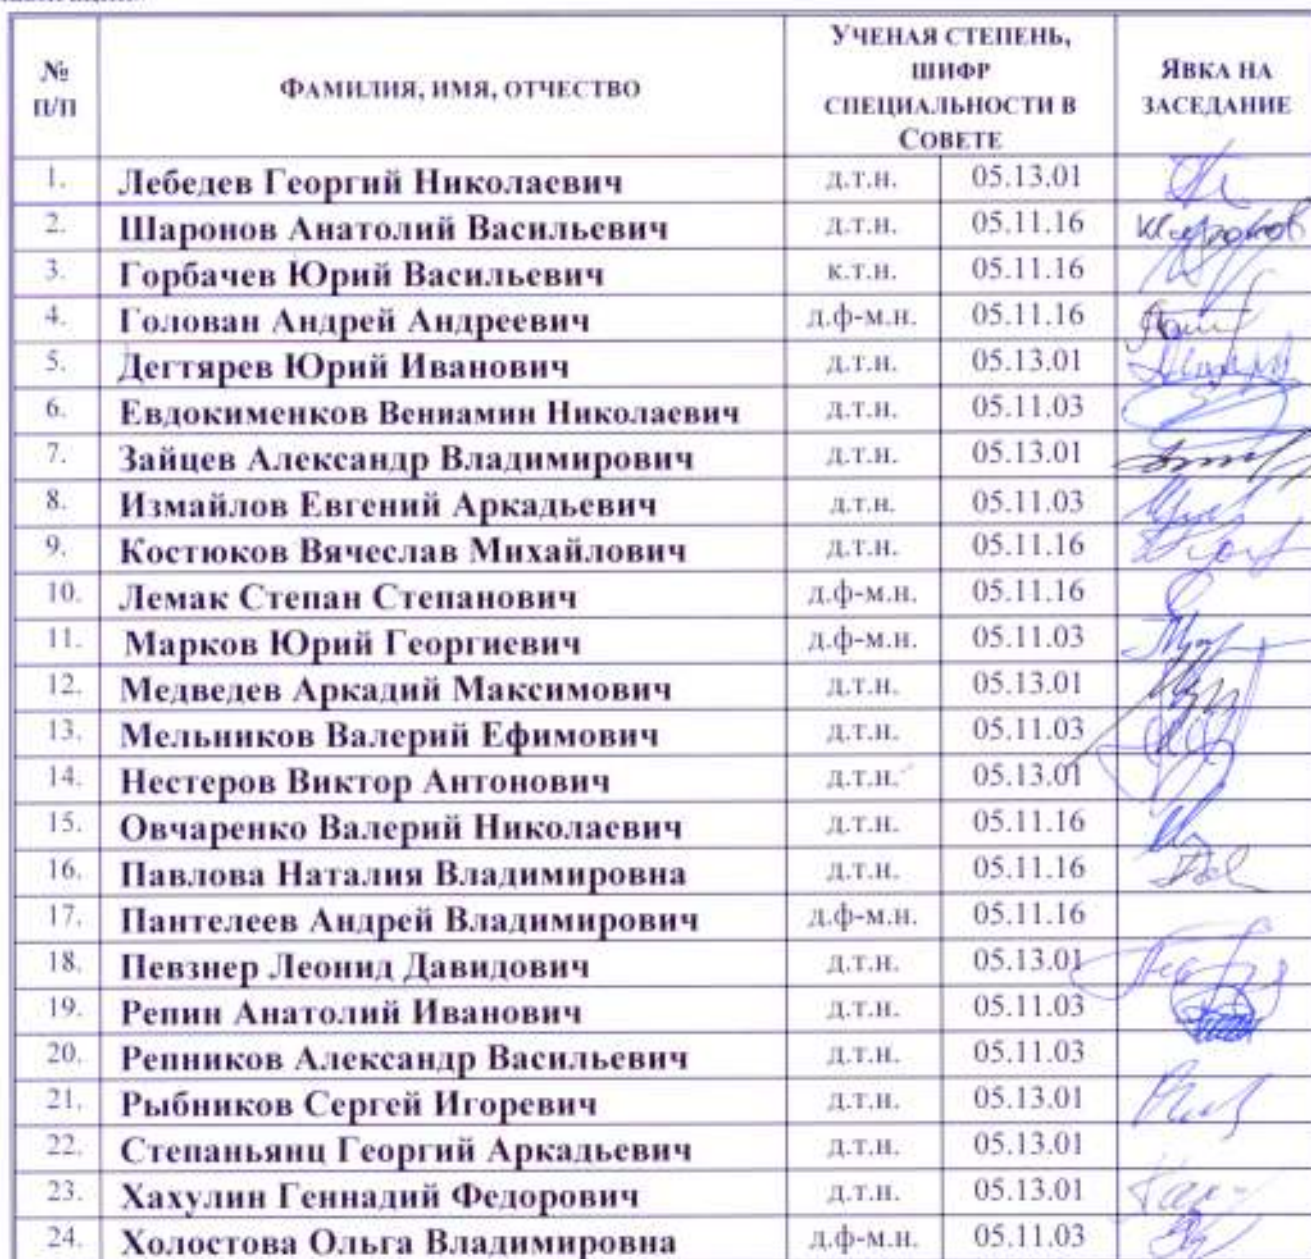 № п/п ФАМИЛИЯ, ИМЯ, ОТЧЕСТВО УЧЕНАЯ СТЕПЕНЬ, ШИФР СПЕЦИАЛЬНОСТИ В СОВЕТЕ ЯВКА НА ЗАСЕДАНИЕ
1. Лебедев Георгий Николаевич д.т.н. 05.13.01
2. Шаронов Анатолий Васильевич д.т.н. 05.11.16
3. Горбачев Юрий Васильевич к.т.н. 05.11.16
4. Голован Андрей Андреевич д.ф-м.н. 05.11.16
5. Дегтярев Юрий Иванович д.т.н. 05.13.01
6. Евдокименков Вениамин Николаевич д.т.н. 05.11.03
7. Зайцев Александр Владимирович д.т.н. 05.13.01
8. Измайлов Евгений Аркадьевич д.т.н. 05.11.03
9. Костюков Вячеслав Михайлович д.т.н. 05.11.16
10. Лемак Степан Степанович д.ф-м.н. 05.11.16
11. Марков Юрий Георгиевич д.ф-м.н. 05.11.03
12. Медведев Аркадий Максимович д.т.н. 05.13.01
13. Мельников Валерий Ефимович д.т.н. 05.11.03
14. Нестеров Виктор Антонович д.т.н. 05.13.01
15. Овчаренко Валерий Николаевич д.т.н. 05.11.16
16. Павлова Наталия Владимировна д.т.н. 05.11.16
17. Пантелеев Андрей Владимирович д.ф-м.н. 05.11.16
18. Певзнер Леонид Давидович д.т.н. 05.13.01
19. Репин Анатолий Иванович д.т.н. 05.11.03
20. Репников Александр Васильевич д.т.н. 05.11.03
21. Рыбников Сергей Игоревич д.т.н. 05.13.01
22. Степаньянц Георгий Аркадьевич д.т.н. 05.13.01
23. Хахулин Геннадий Федорович д.т.н. 05.13.01
24. Холостова Ольга Владимировна д.ф-м.н. 05.11.03